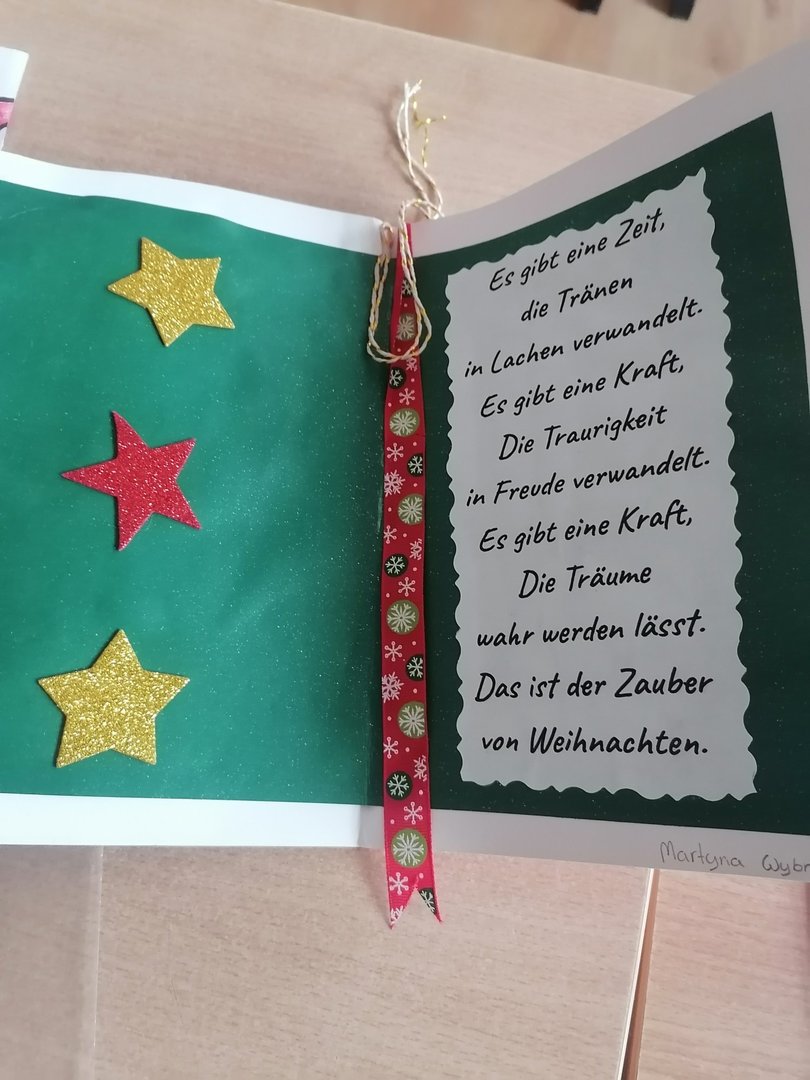 Es gibt eine Zeit,
die Tränen
in Lachen verwandelt.
Es gibt eine Kraft,
Die Traurigkeit
in Freude verwandelt.
Es gibt eine Kraft,
Die Träume
wahr werden lässt.
Das ist der Zauber
von Weihnachten.
Martyna